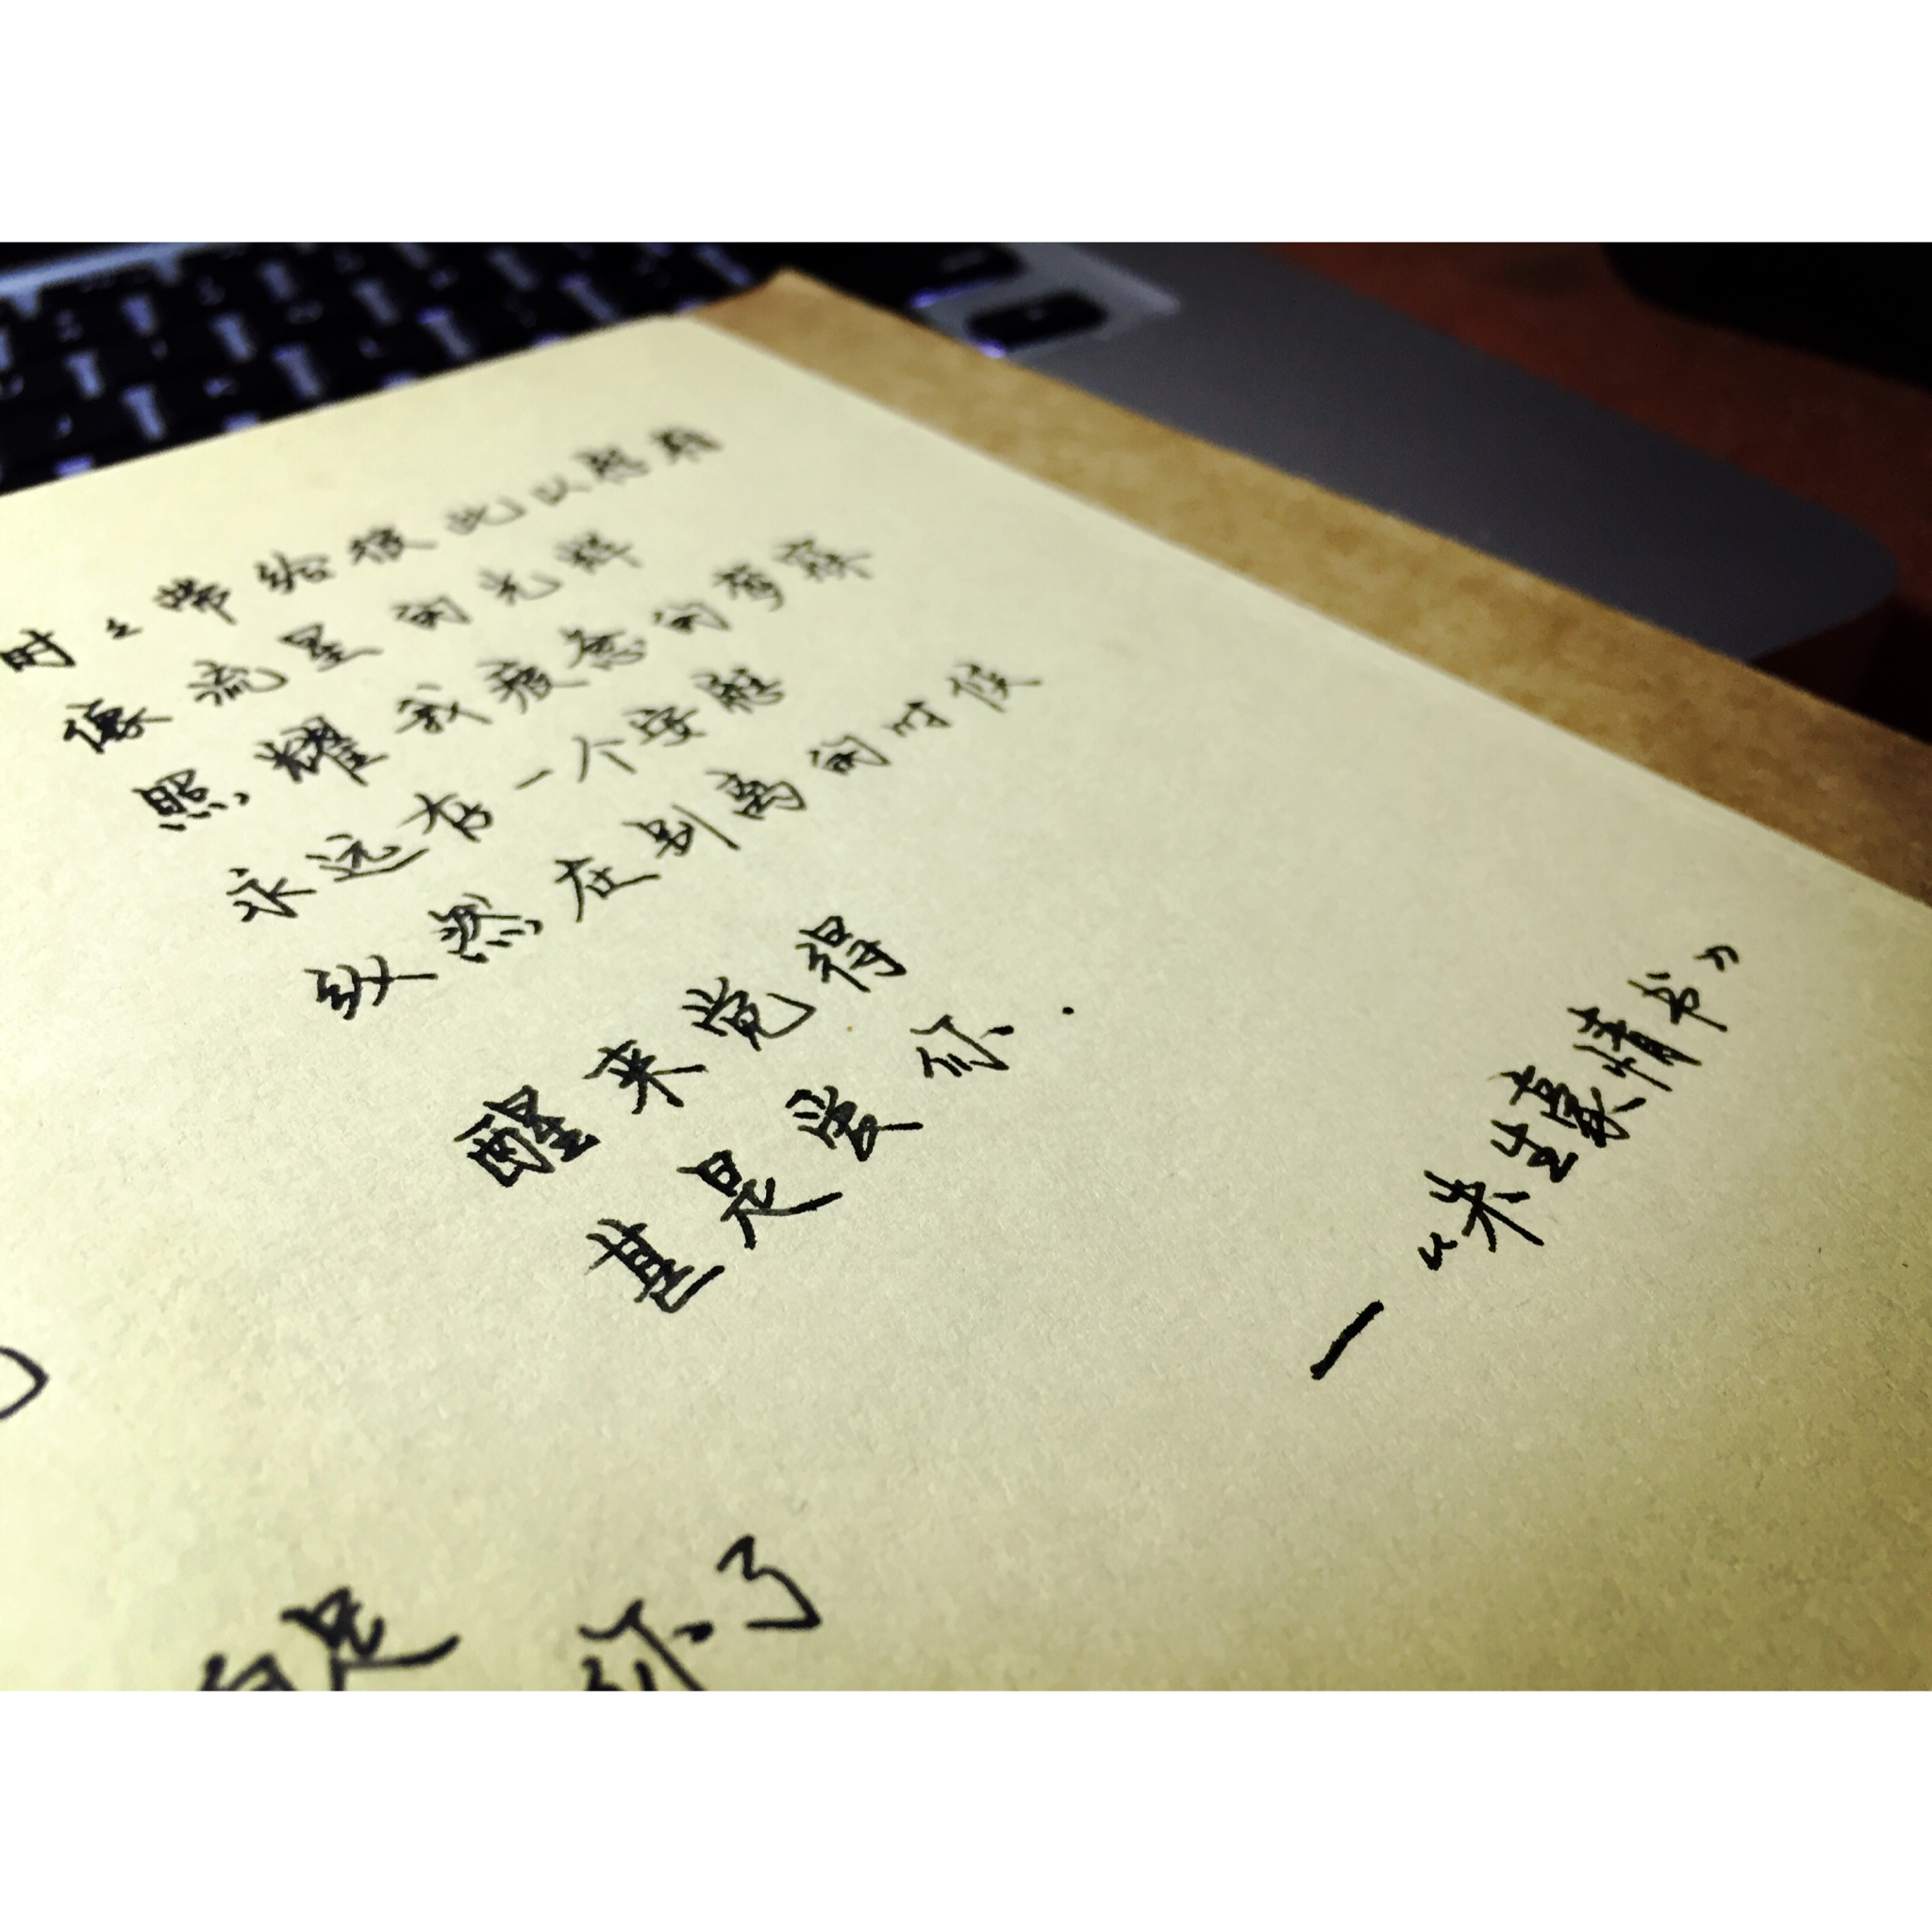 时々带给彼此以慰
像流星的光辉
照耀我疲惫的梦寐
永远存一个安慰
纵然在别离的时候
醒来觉得
甚是爱你.
—《朱生豪情书》
是 你了